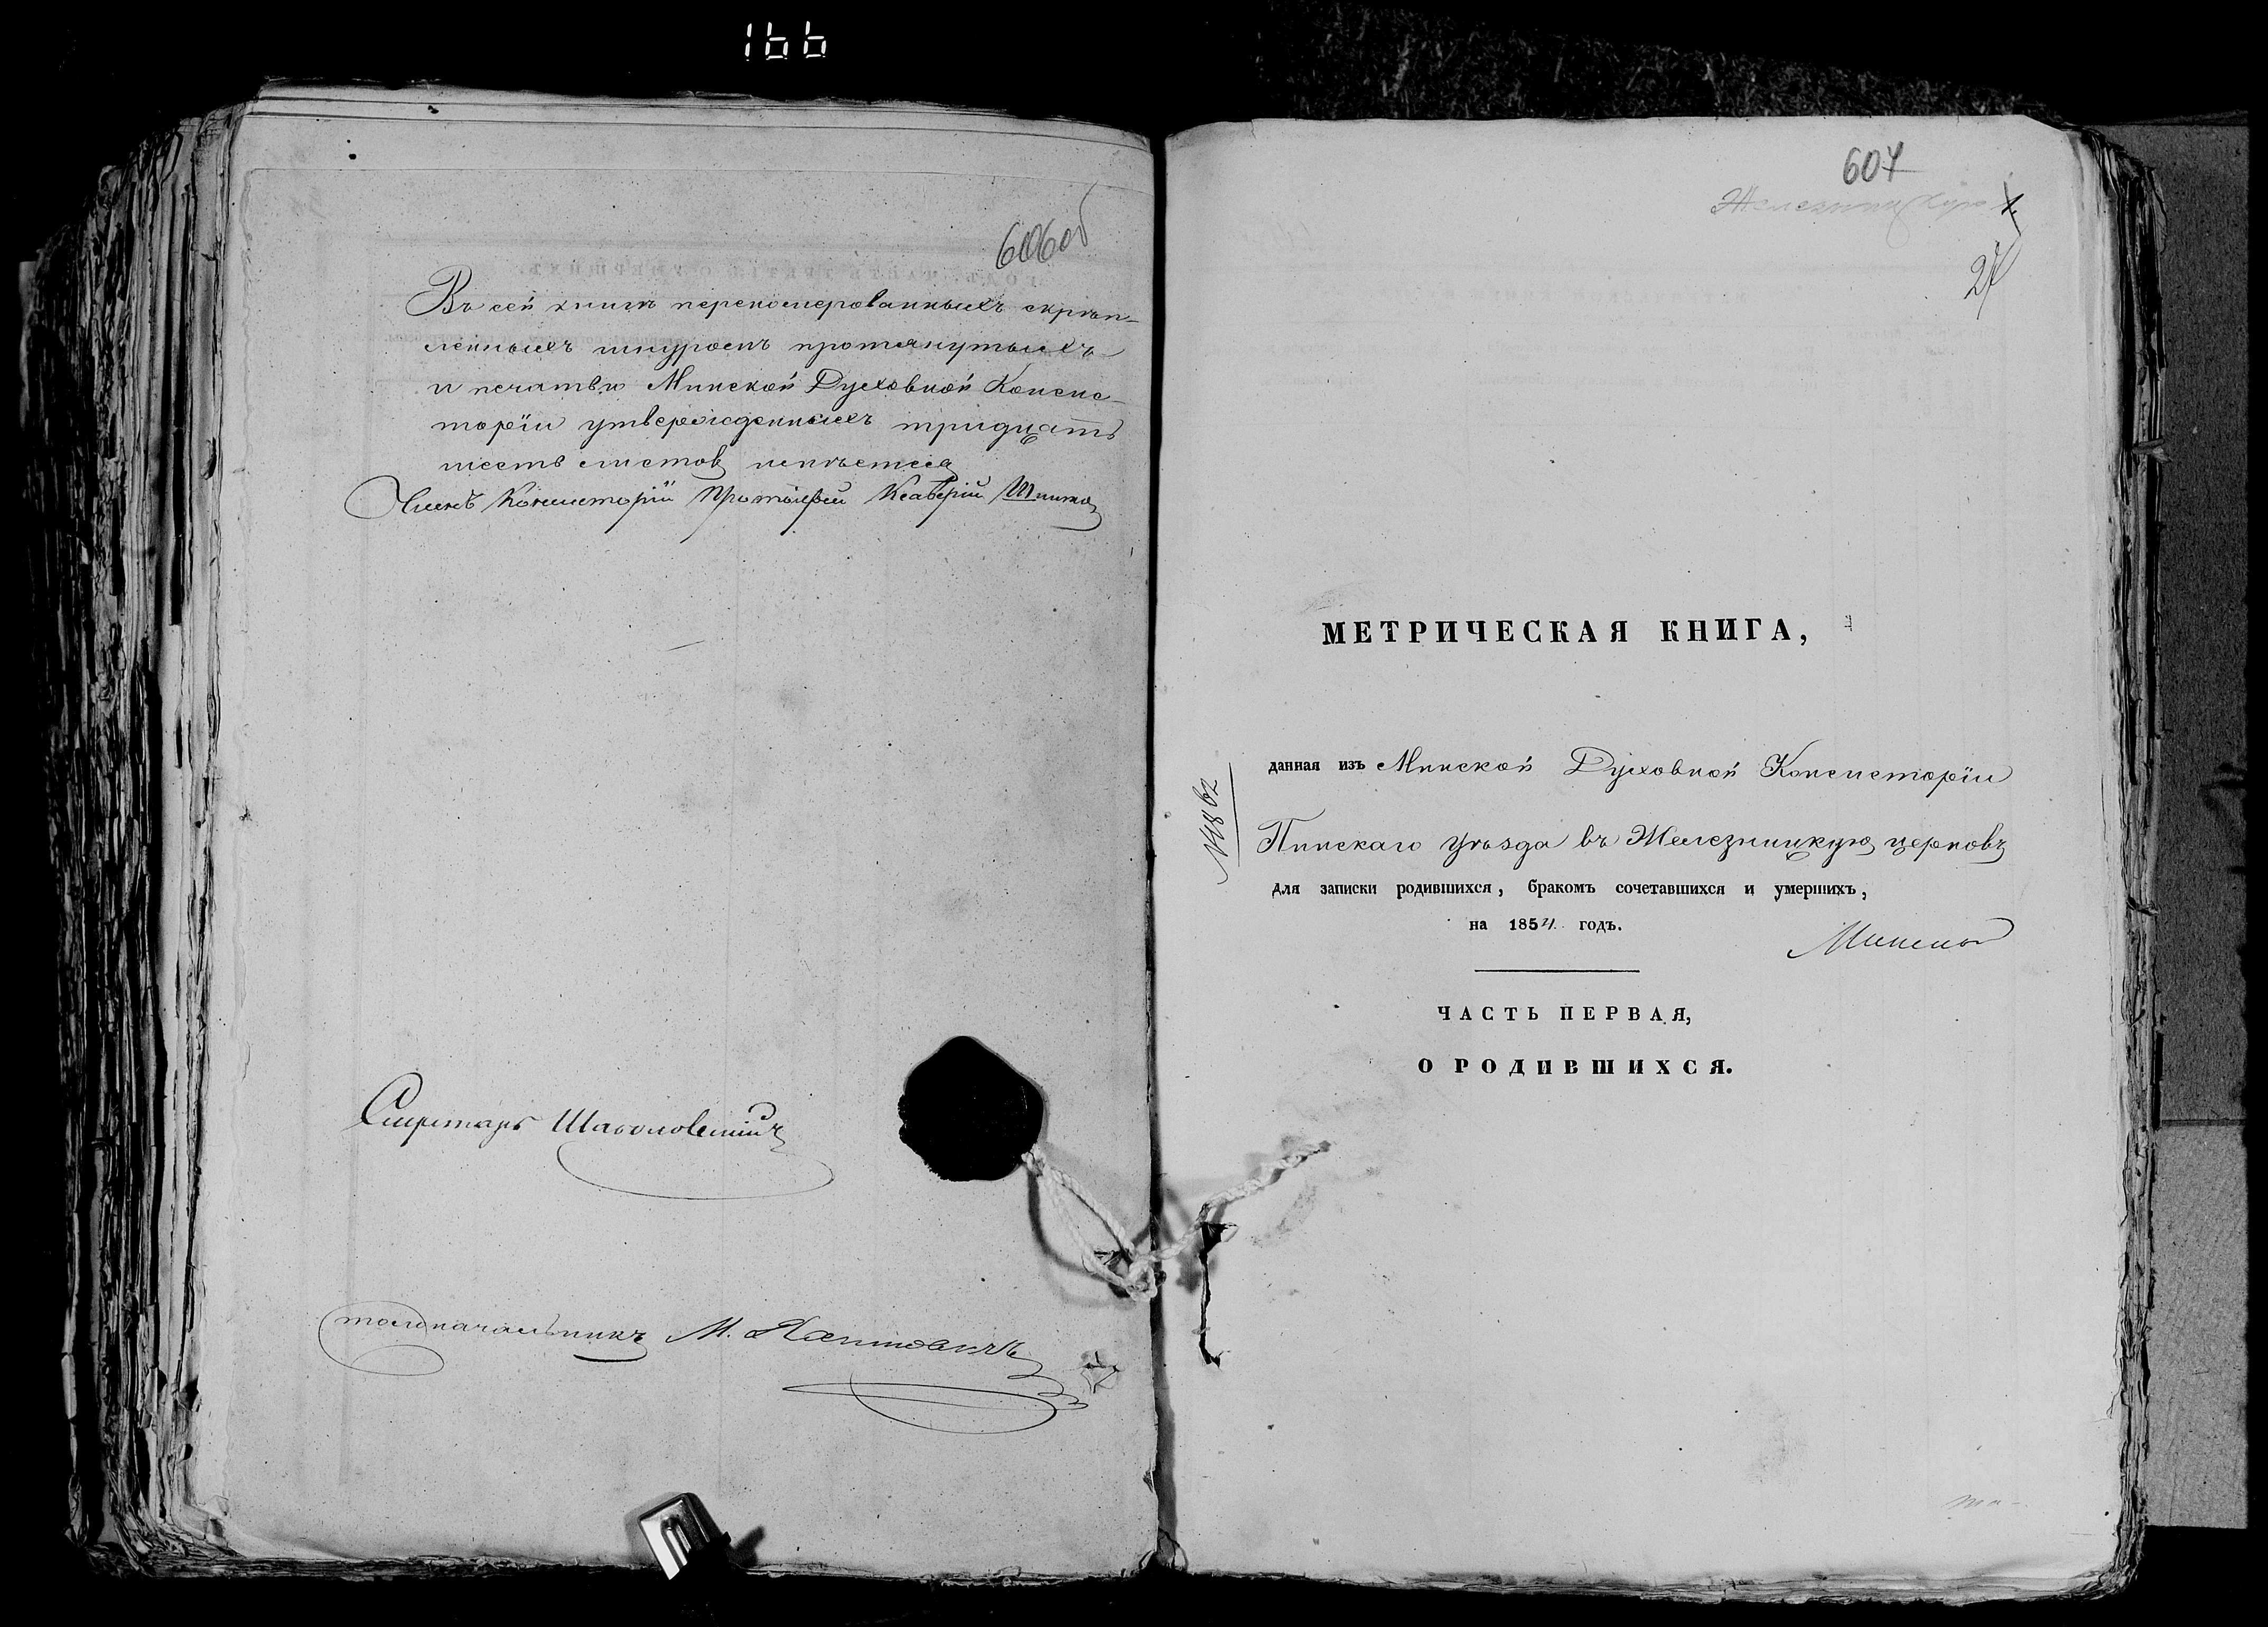 166
606об
Въ сей книгѣ перекомерованныхъ скрѣп-
ленныхъ шнуромъ протянутыхъ
и печатью Минской Духовной Консис-
торіи утвержденныхъ тридцать
шесть листовъ имѣется
Членъ Консисторіи Протоіерей Ксаверій
Секретарь
Столоначальникъ М.
607
1.
МЕТРИЧЕСКАЯ КНИГА,
данная изъ Минской Духовной Консисторіи
Пинскаго уѣзда въ Железницкую церковь
для записки родившихся, бракомъ сочетавшихся и умершихъ,
на 1854 годъ.
Минской
ЧАСТЬ ПЕРВАЯ,
О РОДИВШИХСЯ.